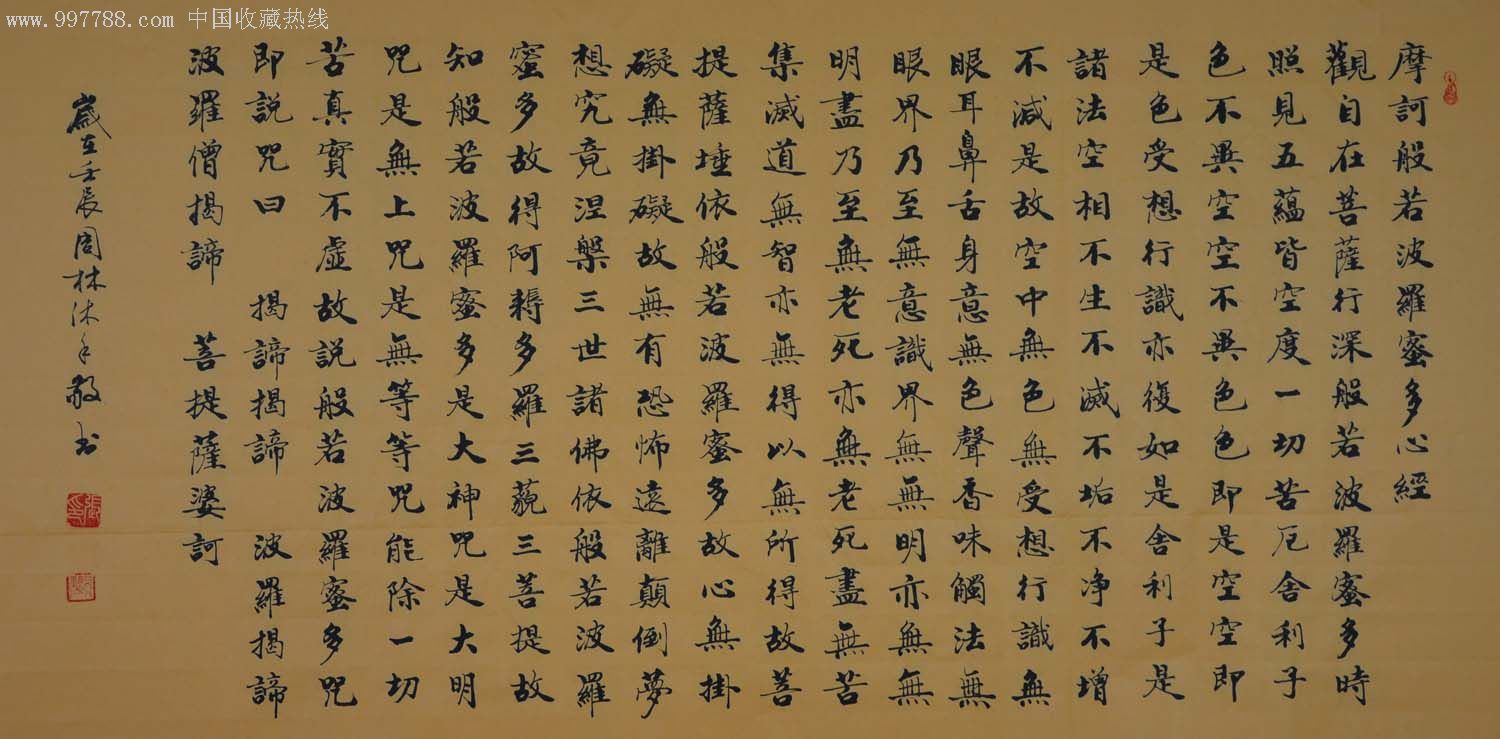 www.997788.com 中国收藏热线
摩訶般若波羅蜜多心經
觀自在菩薩行深般若波羅蜜多時
照見五蘊皆空度一切苦厄舍利子
色不異空空不異色色即是空空即
是色受想行識亦復如是舍利子是
諸法空相不生不滅不垢不净不增
不減是故空中無色無受想行識無
眼耳鼻舌身意無色聲香味觸法無
眼界乃至無意識界無無明亦無無
明盡乃至無老死亦無老死盡無苦
集滅道無智亦無得以無所得故菩
提薩埵依般若波羅蜜多故心無掛
礙無掛礙故無有恐怖遠離顛倒夢
想究竟涅槃三世諸佛依般若波羅
蜜多故得阿耨多羅三藐三菩提故
知般若波羅蜜多是大神咒是大明
咒是無上咒是無等等咒能除一切
苦真實不虛故説般若波羅蜜多咒
即説咒曰 揭諦揭諦 波羅揭諦
波羅僧揭諦 菩提薩婆訶
歲在壬辰周林沐手敬书